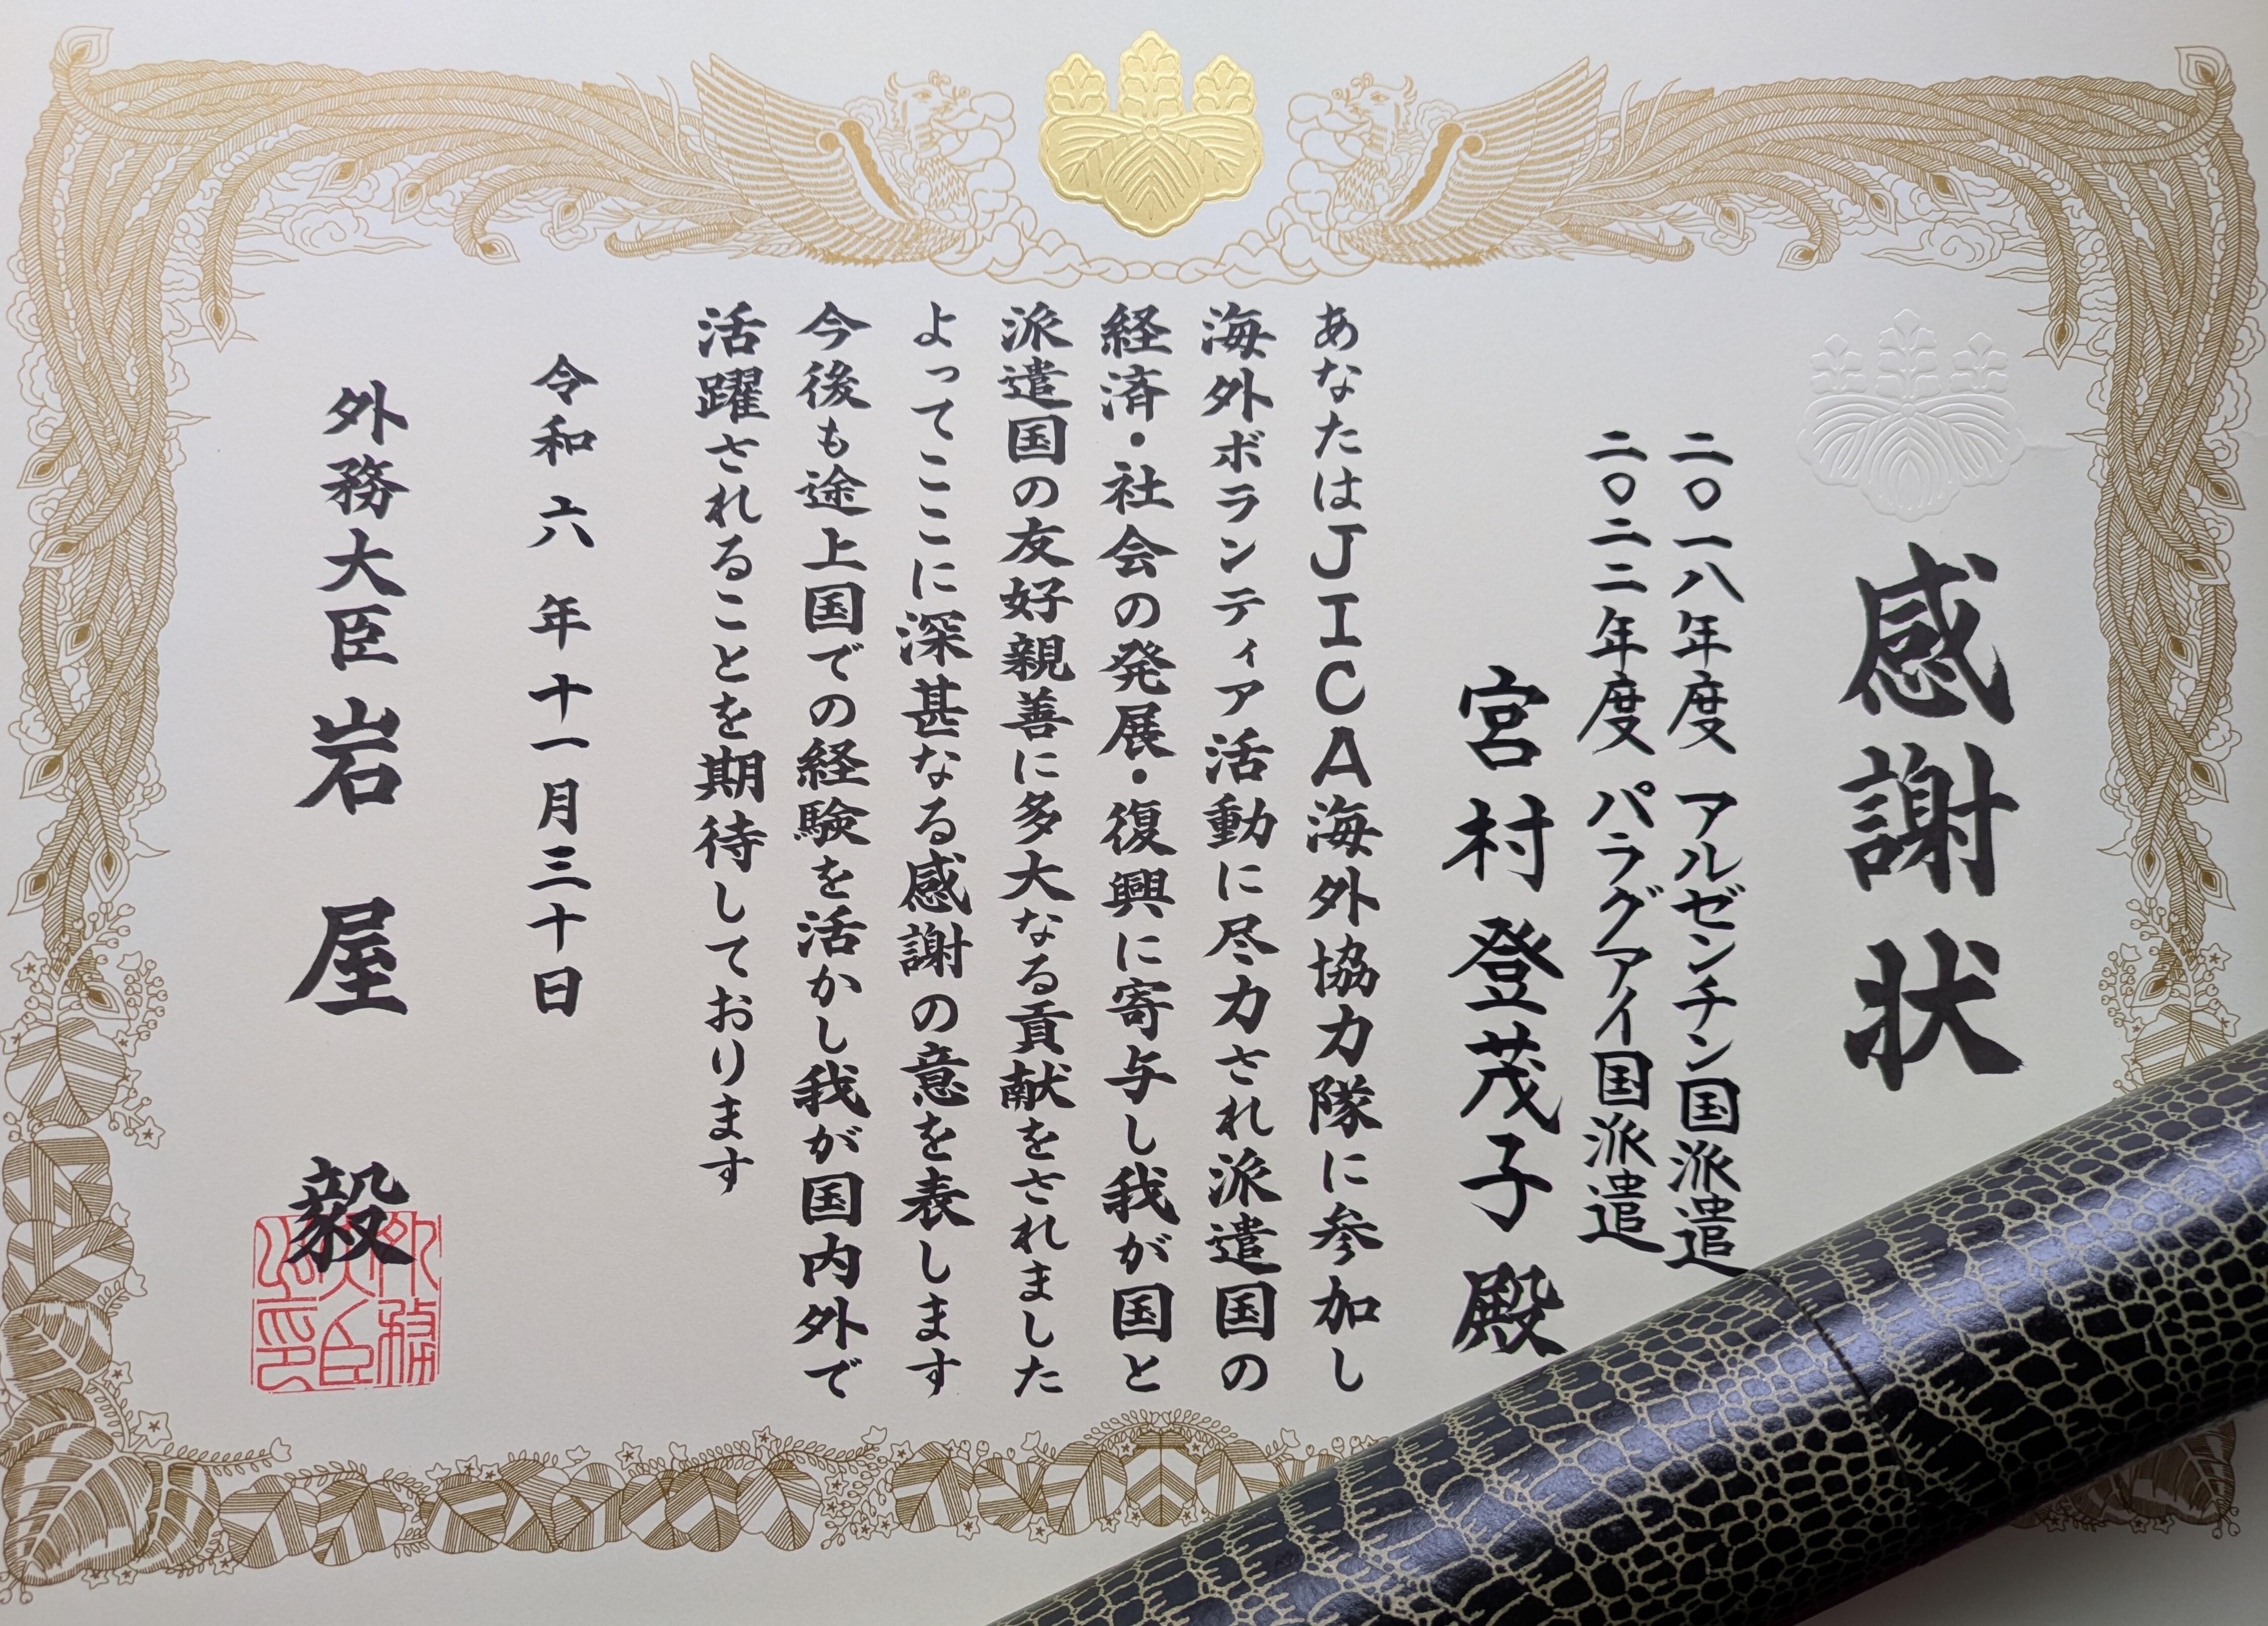 感謝状
二〇一八年度 アルゼンチン国派遣
二〇二二年度 パラグアイ国派遣
宮村登茂子殿
あなたはJICA海外協力隊に参加し
海外ボランティア活動に尽力され派遣国の
経済・社会の発展・復興に寄与し我が国と
派遣国の友好親善に多大なる貢献をされました
よってここに深甚なる感謝の意を表します
今後も途上国での経験を活かし我が国内外で
活躍されることを期待しております
令和六年十一月三十日
外務大臣 岩屋 毅
外務
大臣
之印